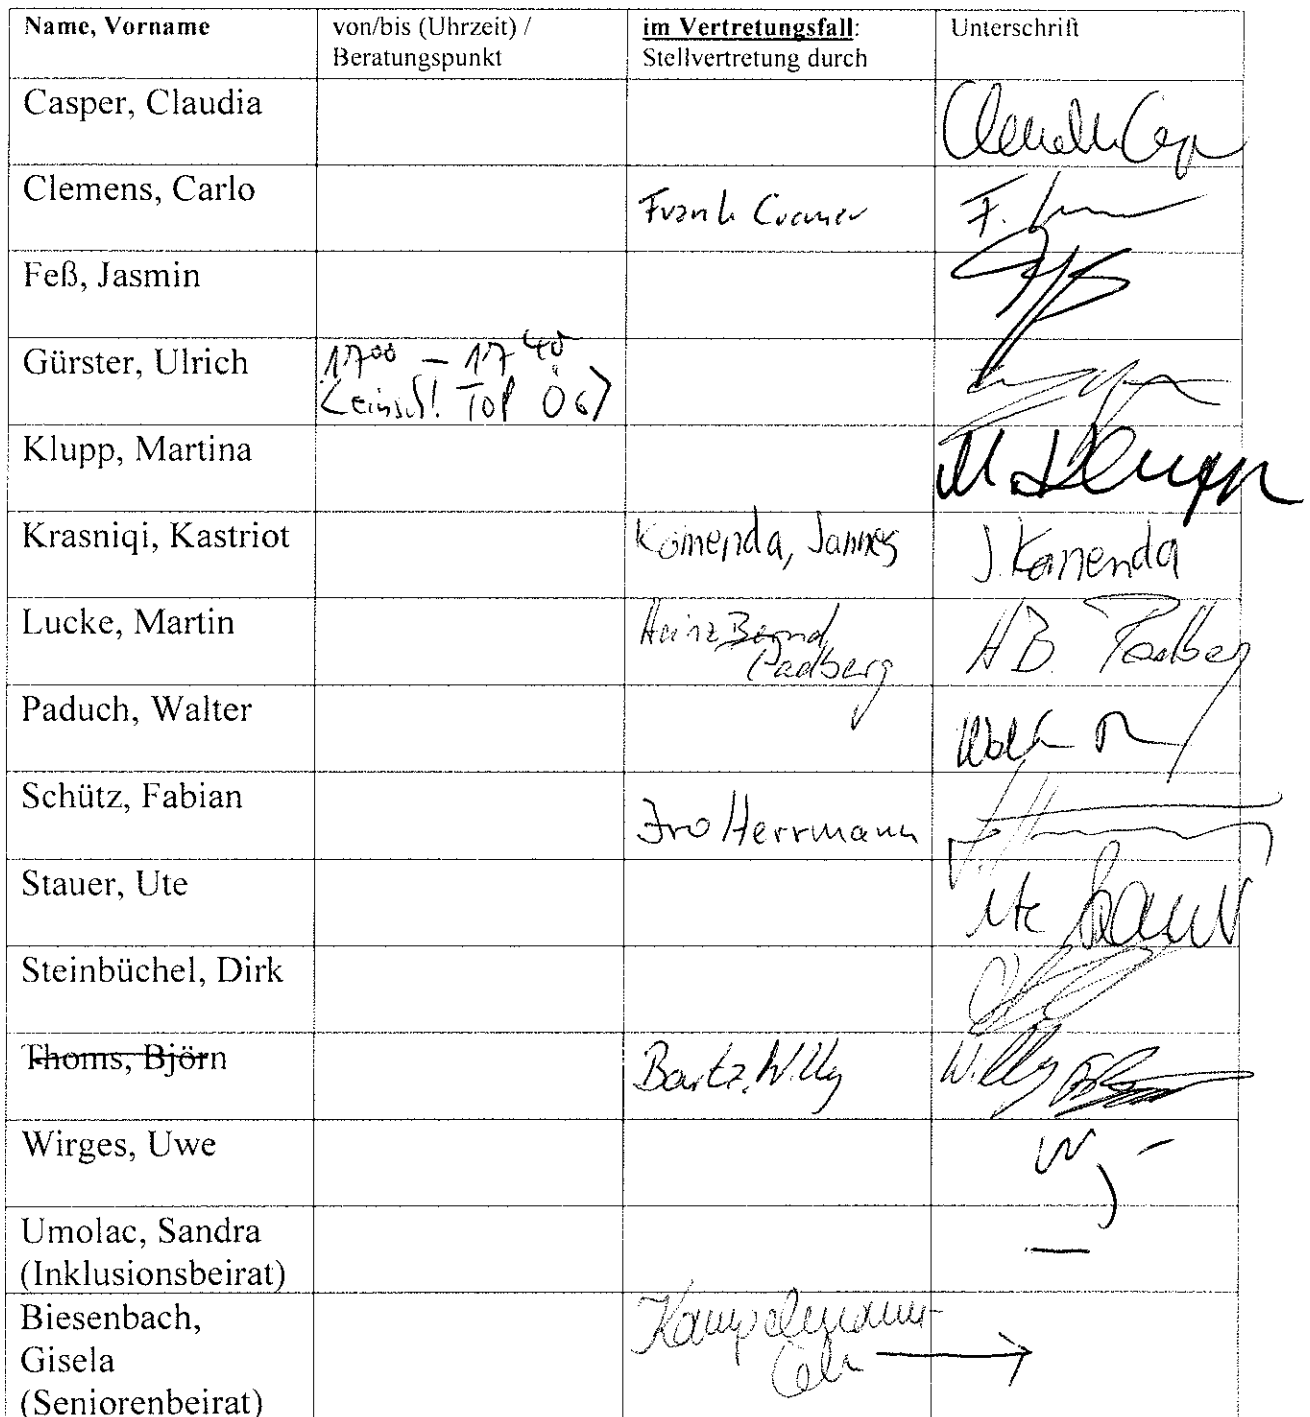 Name, Vorname von/bis (Uhrzeit) / im Vertretungsfall: Unterschrift
Beratungspunkt Stellvertretung durch
Casper, Claudia
Clemens, Carlo Frank Cramer F.
Feß, Jasmin
Gürster, Ulrich 17⁰⁰ – 17⁴⁰
(einschl. TOP Ö6)
Klupp, Martina M. Klupp
Krasniqi, Kastriot Komenda, Jannes J. Komenda
Lucke, Martin Heinz Bernd H B. Padberg
Padberg
Paduch, Walter
Schütz, Fabian Herrmann
Stauer, Ute Ute Stauer
Steinbüchel, Dirk
Thoms, Björn Bartz, Willy Willy
Wirges, Uwe
Umolac, Sandra —
(Inklusionsbeirat)
Biesenbach, Kampelmann-
Gisela →
(Seniorenbeirat)